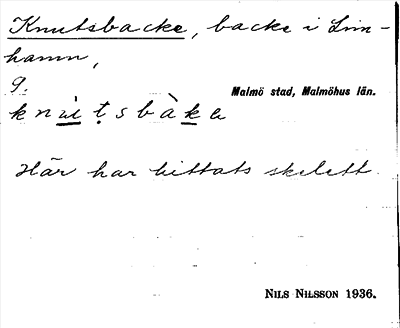 Knutsbacke, backe i Lim-
hamn,
9.
Malmö stad, Malmöhus län.
Här har hittats skelett.
NILS NILSSON 1936.